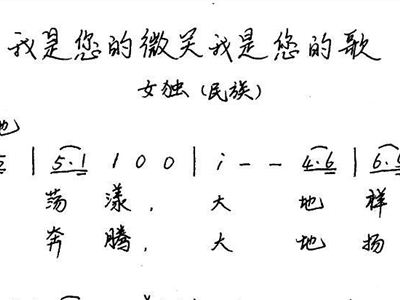 我是您的微笑我是您的歌
女独（民族）
地
| 5·1 1 0 0 | i - - 4·6 | 6·5
荡 漾， 大 地 祥
奔 腾， 大 地 扬